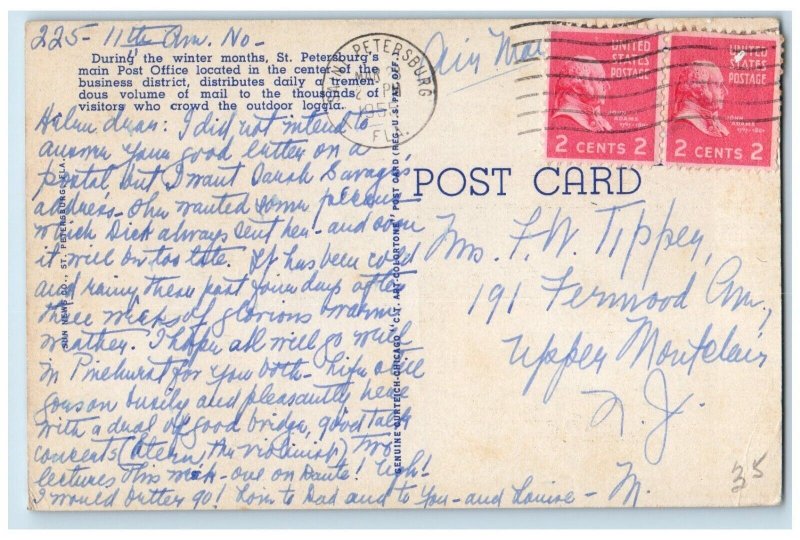 225 - 11th Ave. No -
During the winter months, St. Petersburg's
main Post Office located in the center of the
business district, distributes daily a tremen-
dous volume of mail to the thousands of
visitors who crowd the outdoor loggia.
Helen dear: I did not intend to
answer your good letter on a
postal but I want Sarah Savage's
address. She wanted some
which Dick always sent her - and soon
it will be too late. It has been cold
and rainy these past four days after
three weeks of glorious warm
weather. I hope all will go well
in Pinehurst for you both - Life still
goes on busily and pleasantly here
with a deal of good bridge, good talk
concerts (Stern, the violinist) two
lectures this week - one on Dante! Ugh!
I would better go! Love to Dad and to You - and Louise - M.
SUN NEWS CO., ST. PETERSBURG, FLA.
GENUINE CURTEICH-CHICAGO "C.T. ART-COLORTONE" POST CARD (REG. U.S. PAT. OFF.)
ST. PETERSBURG
MAR
PM
1955
FLA.
Air Mail
UNITED
STATES
POSTAGE
JOHN
ADAMS
1797-1801
2 CENTS 2
UNITED
STATES
POSTAGE
JOHN
ADAMS
1797-1801
2 CENTS 2
POST CARD
Mrs. F. W. Tippey,
191 Fernwood Ave.,
Upper Montclair
N. J.
35